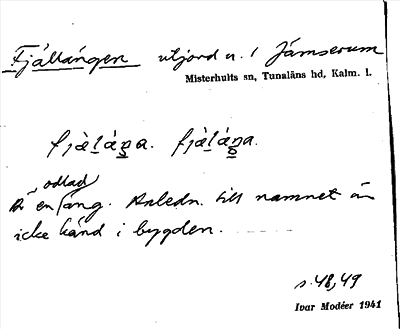 Fjällängen utjord u. 1 Jämserum
Misterhults sn, Tunaläns hd, Kalm. l.
fjäläŋa. fjälåŋa.
odlad
Är en äng. Anledn. till namnet är
icke känd i bygden.
s. 48, 49
Ivar Modéer 1941